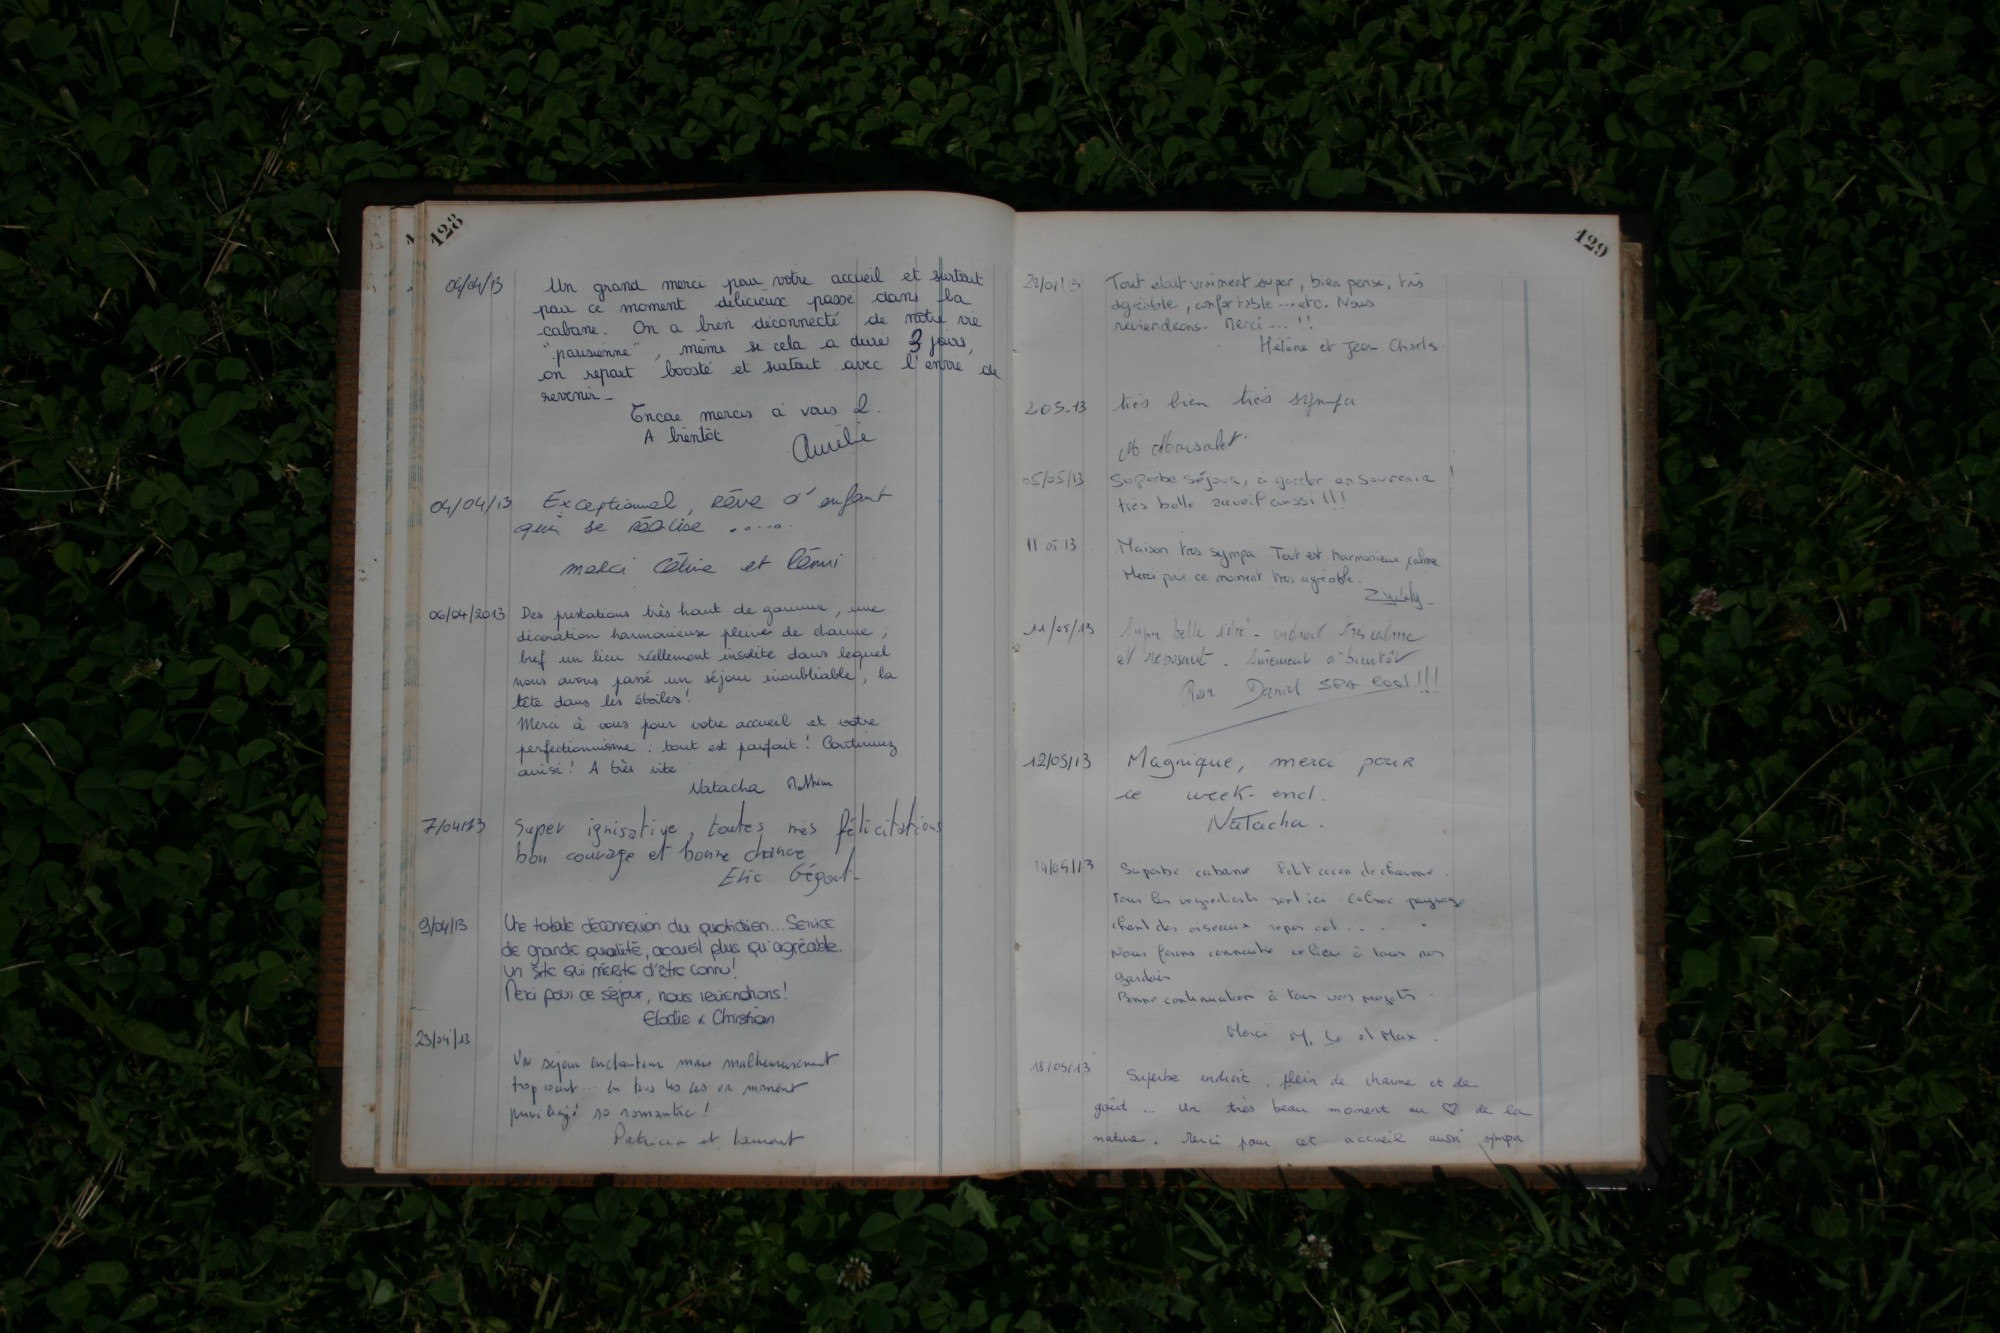 128
04/04/13 Un grand merci pour votre accueil et surtout
pour ce moment délicieux passé dans la
cabane. On a bien déconnecté de notre vie
"parisienne", même si cela a duré 3 jours,
on repart boosté et surtout avec l'envie de
revenir_
Encore mercis à vous 2.
A bientôt Aurélie
04/04/13 Exceptionnel, rêve d'enfant
qui se réalise .....
merci Céline et Rémi
06/04/2013 Des prestations très haut de gamme, une
décoration harmonieuse pleine de charme ;
bref un lieu réellement insolite dans lequel
nous avons passé un séjour inoubliable, la
tête dans les étoiles !
Merci à vous pour votre accueil et votre
perfectionnisme : tout est parfait ! Continuez
ainsi ! A très vite
Natacha
7/04/13 Super , toutes mes félicitations
bon courage et bonne chance
Eric
9/04/13 Une totale déconnexion du quotidien... Service
de grande qualité, accueil plus qu'agréable.
Un site qui mérite d'être connu !
Merci pour ce séjour, nous reviendrons !
Elodie & Christian
23/04/13
Un séjour enchanteur mais malheureusement
trop court... en tous les cas un moment
privilégié so romantic !
Patricia et
129
Tout etait vraiment super, bien pensé, très
agréable, confortable ... etc. Nous
reviendrons. Merci ... !!
Hélène et Jean Charls
2 05.13 très bien très sympa
05/05/13 Superbe séjour, à garder en souvenir !
très belle accueil aussi !!!
11 05 13 Maison très sympa Tout est harmonieux, calme.
Merci pour ce moment très agréable.
11/05/13 Super belle idée - endroit très calme
et reposant. Sûrement à bientôt
Daniel
12/05/13 Magnique, merci pour
ce week-end.
Natacha.
14/05/13 Superbe cabane Petit cocon de charme.
Tous les ingrédients sont ici calme paysage
chant des oiseaux repos ect...
Nous ferons connaitre ce lieu à tous nos
Bonne continuation à tous vos projets.
Merci M, et Max.
18/05/13 Superbe endroit, plein de charme et de
goût ... Un très beau moment au ♡ de la
nature. Merci pour cet accueil aussi sympa